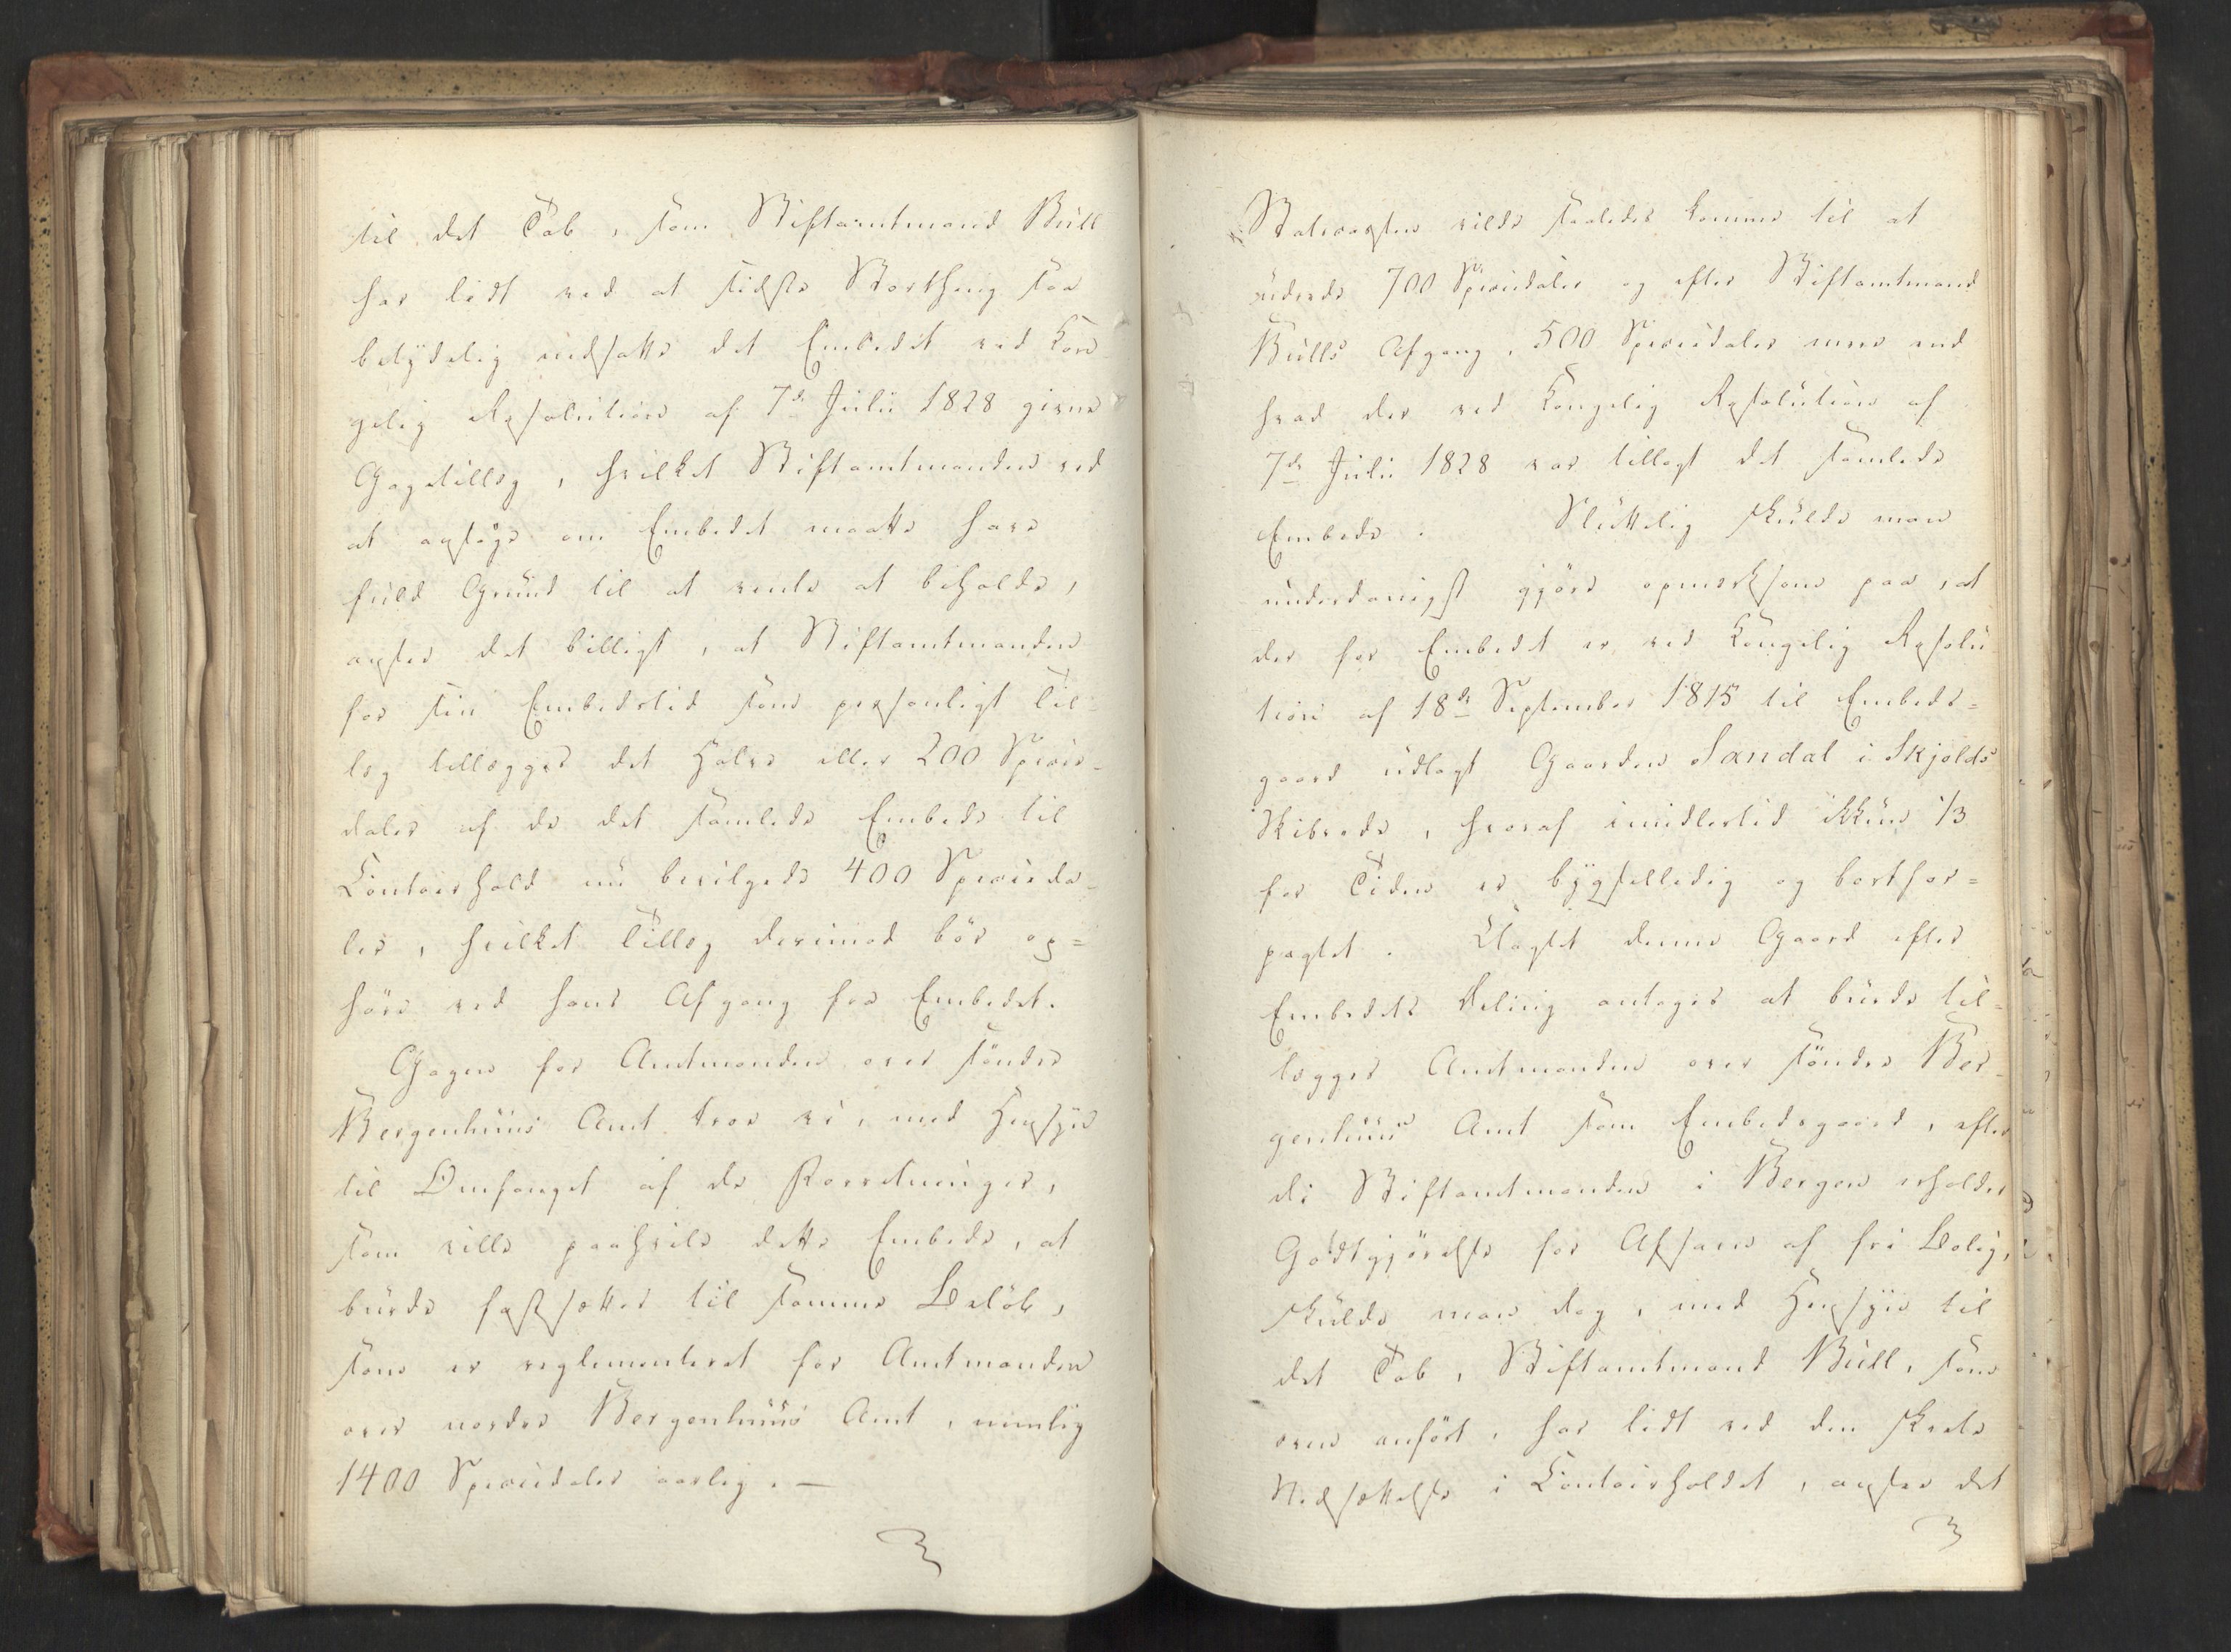 til det Tab, som Stiftamtmand Bull
har lidt ved at sidste Storthing saa
betydelig nedsatte det Embedet ved Kon-
gelig Resolution af 7de Julii 1828 givne
Gagetillæg, hvilket Stiftamtmanden ved
at ansøge om Embedet maatte have
fuld Grund til at vente at beholde,
ansees det billigt, at Stiftamtmanden
for sin Embedstid som personligt Til-
læg tillægges det Halve eller 200 Specie-
daler af de det samlede Embede til
Contoirhold nu bevilgede 400 Specieda-
ler, hvilket Tillæg derimod bør op=
høre ved hans Afgang fra Embedet.
Gagen for Amtmanden over søndre
Bergenhuus Amt troe vi, med Hensyn
til Omfanget af de Forretninger,
som ville paahvile dette Embede, at
burde fastsættes til samme Beløb,
som er reglementeret for Amtmanden
over nordre Bergenhuus Amt, nemlig
1400 Speciedaler aarlig. —
Statscassen vilde saaledes komme til at
udrede 700 Speciedaler og efter Stiftamtmand
Bulls Afgang, 500 Speciedaler mere end
hvad der ved Kongelig Resolution af
7de Julii 1828 var tillagt det samlede
Embede. Sluttelig skulde man
underdanigst gjøre opmærksom paa, at
der for Embedet er ved Kongelig Resolu-
tion af 18de September 1815 til Embeds=
gaard udlagt Gaarden Sandal i Skjolds
Skibrede, hvoraf imidlertid ikkun 1/3
for Tiden er bygselledig og bortfor=
pagtet. Uagtet denne Gaard efter
Embedets Deling antages at burde til=
lægges Amtmanden over søndre Ber-
genhuus Amt som Embedsgaard, efter
di Stiftamtmanden i Bergen erholder
Godtgjørelse for Afsavn af fri Bolig,
skulde man dog, med Hensyn til
det Tab, Stiftamtmand Bull, som
oven anført, har lidt ved den skeete
Nedsættelse i Contoirholdet, ansee det